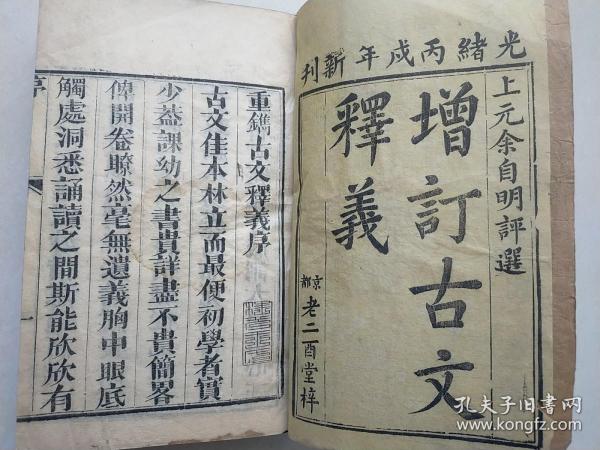 光緒丙戍年新刊
上元余自明評選
增訂古文
釋義
京都老二酉堂梓
重鐫古文釋義序
古文佳本林立而最便初學者實
少葢課幼之書貴詳盡不貴簡畧
俾開卷瞭然毫無遺義胸中眼底
觸處洞悉誦讀之間斯能欣欣有
序
一
孔夫子旧书网
www.kongfz.com